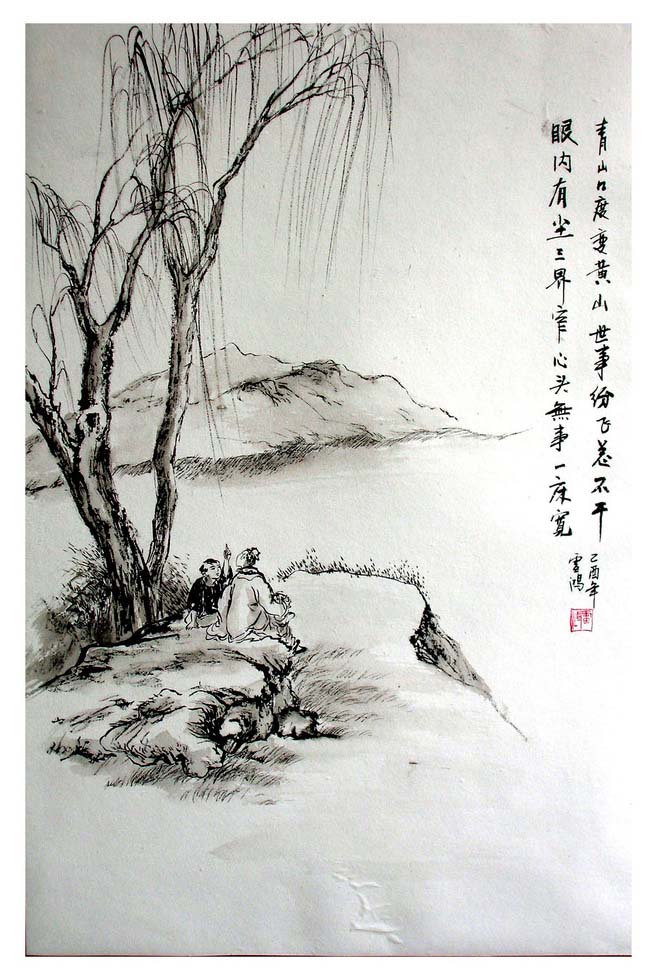 青山几度变黄山世事纷飞总不干
眼内有尘三界窄心头無事一床寬
乙酉年
雪鸿